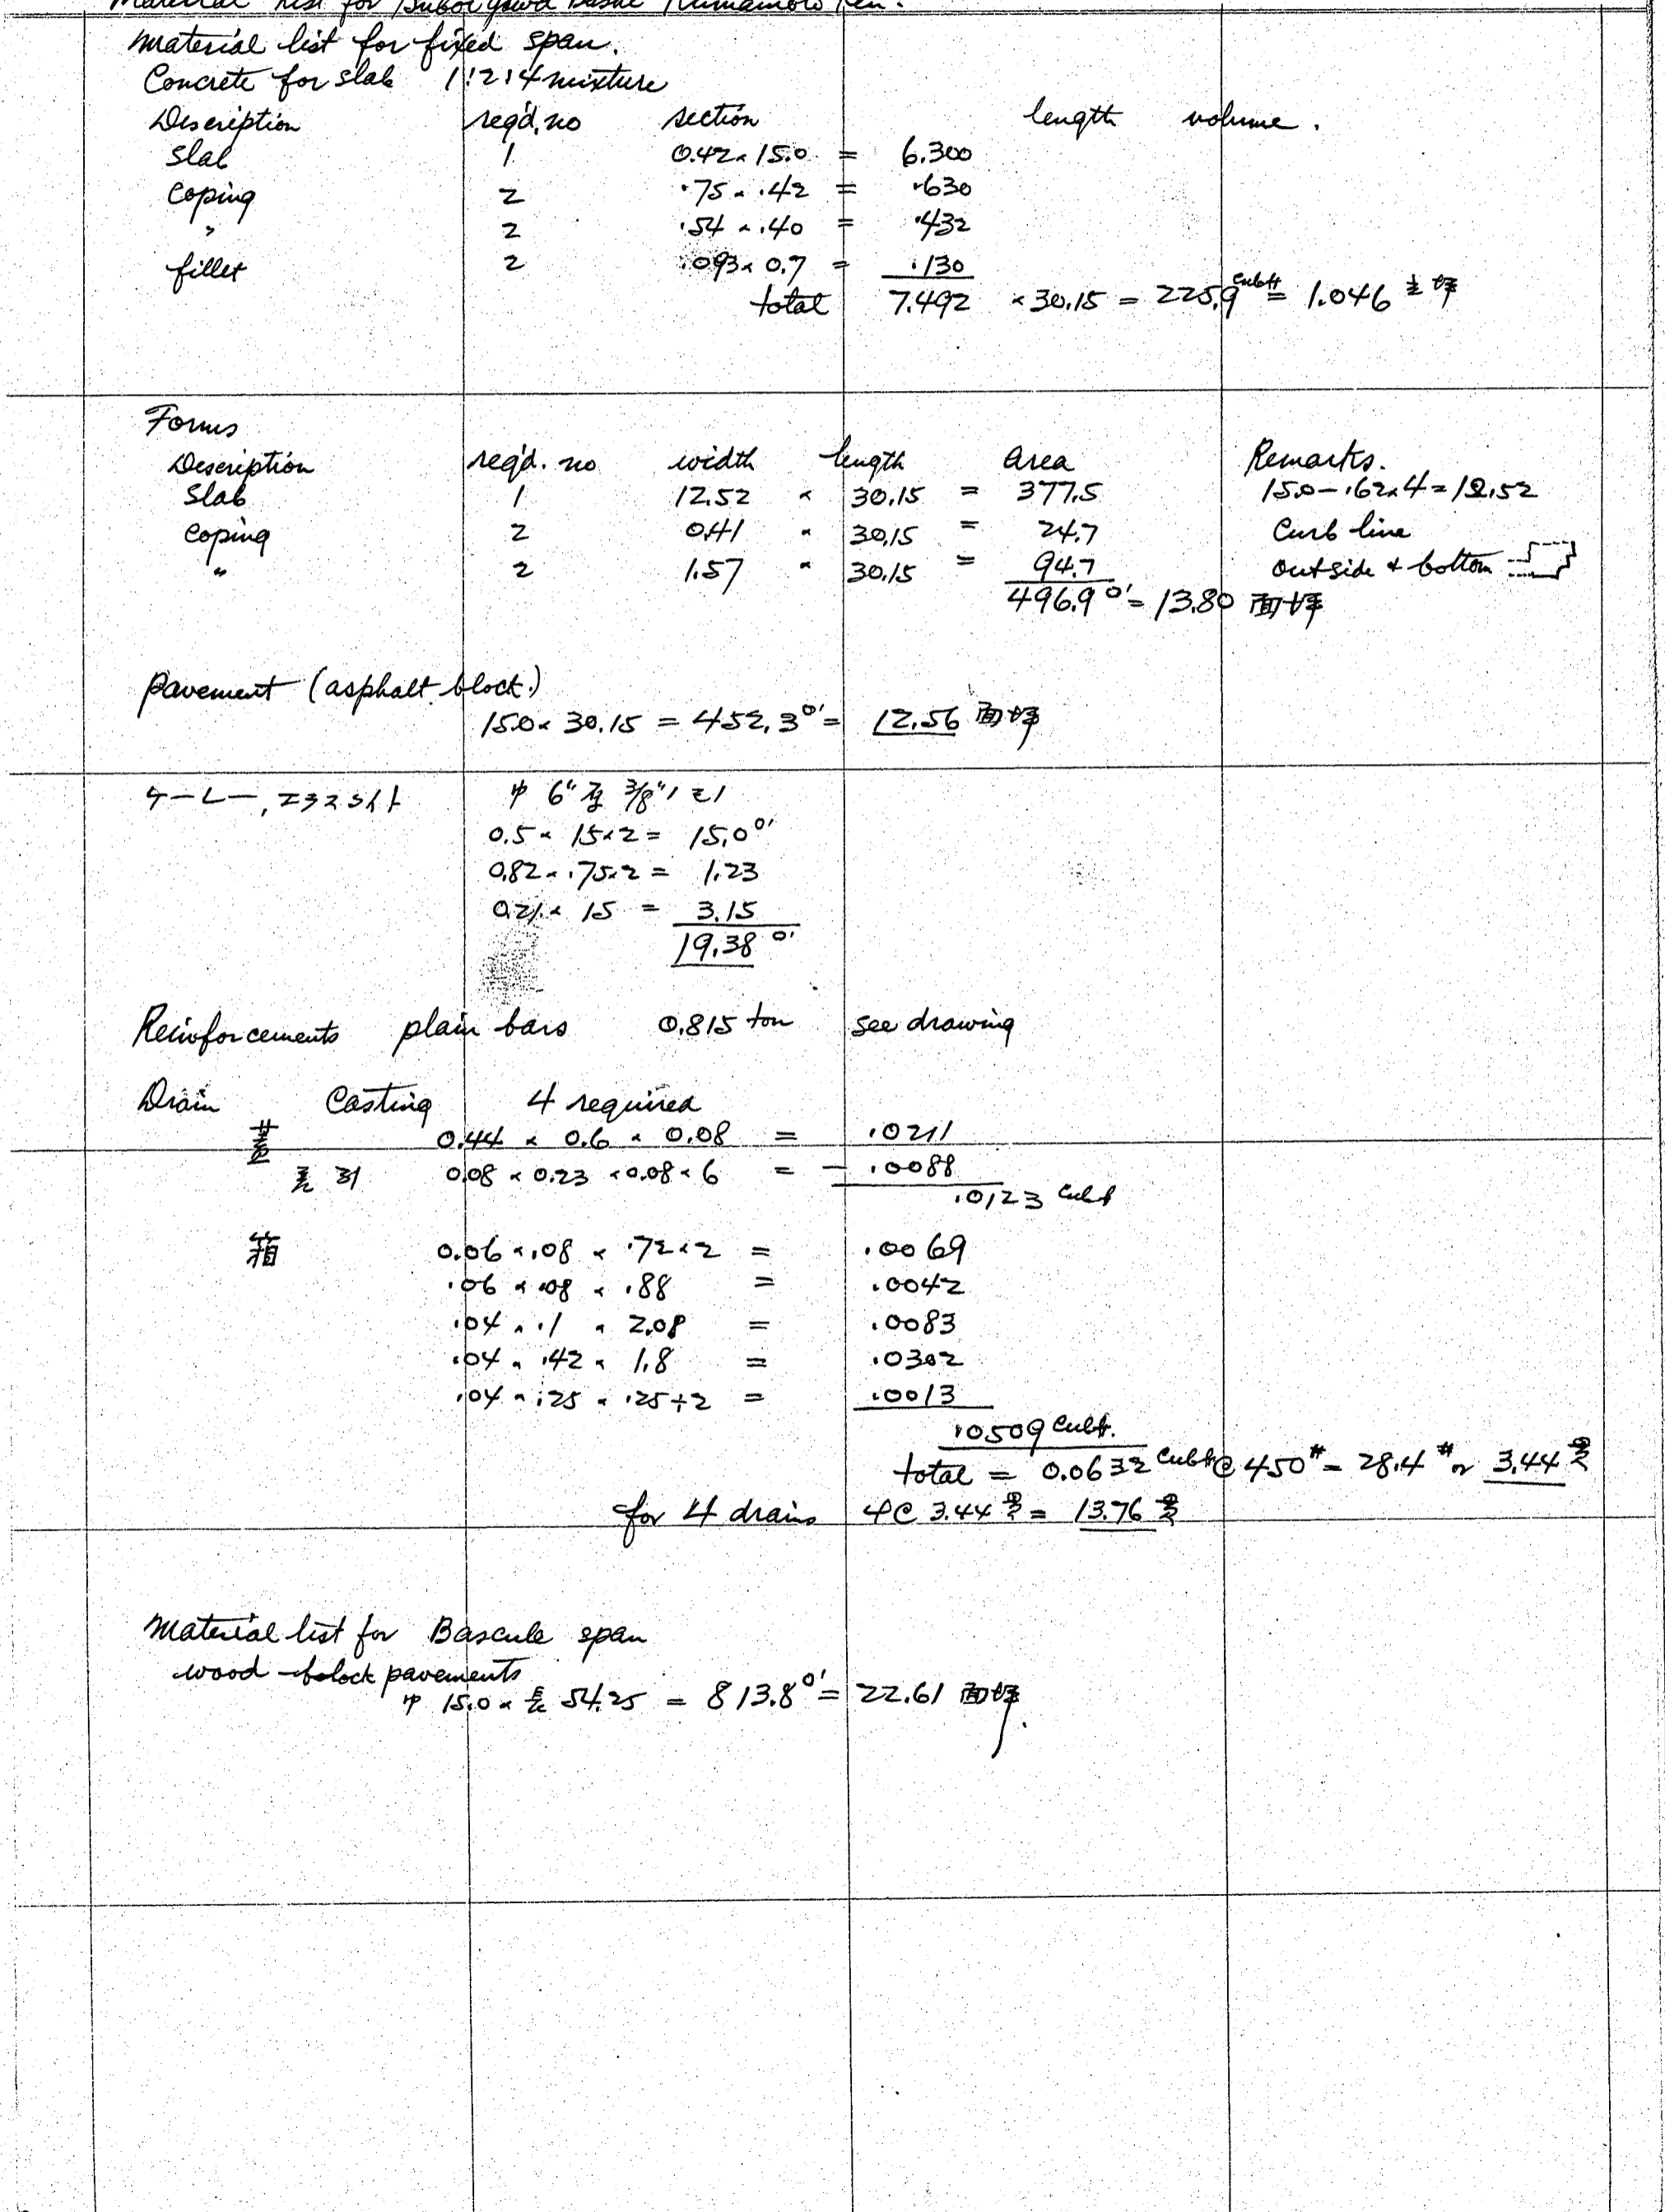 Material list for Kumamoto Ken.
Material list for fixed span.
Concrete for slab 1:2:4 mixture
Description req'd. no section length volume.
Slab 1 0.42 × 15.0 = 6.300
Coping 2 .75 × .42 = .630
" 2 .54 × .40 = .432
fillet 2 .093 × 0.7 = .130
total 7.492 × 30.15 = 225.9 cub ft = 1.046 立坪
Forms
Description req'd. no width length area Remarks.
Slab 1 12.52 × 30.15 = 377.5 15.0 - .62 × 4 = 12.52
Coping 2 0.41 × 30.15 = 24.7 Curb line
" 2 1.57 × 30.15 = 94.7 outside & bottom
496.9 □' = 13.80 面坪
Pavement (asphalt block.)
15.0 × 30.15 = 452.3 □' = 12.56 面坪
巾 6" 厚 3/8"
0.5 × 15 × 2 = 15.0 □'
0.82 × .75 × 2 = 1.23
0.21 × 15 = 3.15
19.38 □'
Reinforcements plain bars 0.815 ton see drawing
Drain Casting 4 required
蓋 0.44 × 0.6 × 0.08 = .0211
差引 0.08 × 0.23 × 0.08 × 6 = - .0088
.0123 cub ft
箱 0.06 × .08 × .72 × 2 = .0069
.06 × .08 × .88 = .0042
.04 × .1 × 2.08 = .0083
.04 × .42 × 1.8 = .0302
.04 × .25 × .25 ÷ 2 = .0013
.0509 cub ft.
total = 0.0632 cub ft @ 450# = 28.4# or 3.44 貫
for 4 drains 4 @ 3.44 貫 = 13.76 貫
Material list for Bascule span
wood-block pavements
巾 15.0 × 長 54.25 = 813.8 □' = 22.61 面坪.